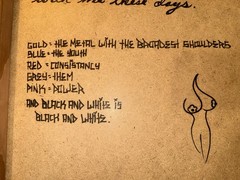 with me these days.
GOLD = THE METAL WITH THE BROADEST SHOULDERS
BLUE = THE YOUTH
RED = CONSISTANCY
GREY = THEM
PINK = POWER
AND BLACK AND WHITE IS
BLACK AND WHITE.